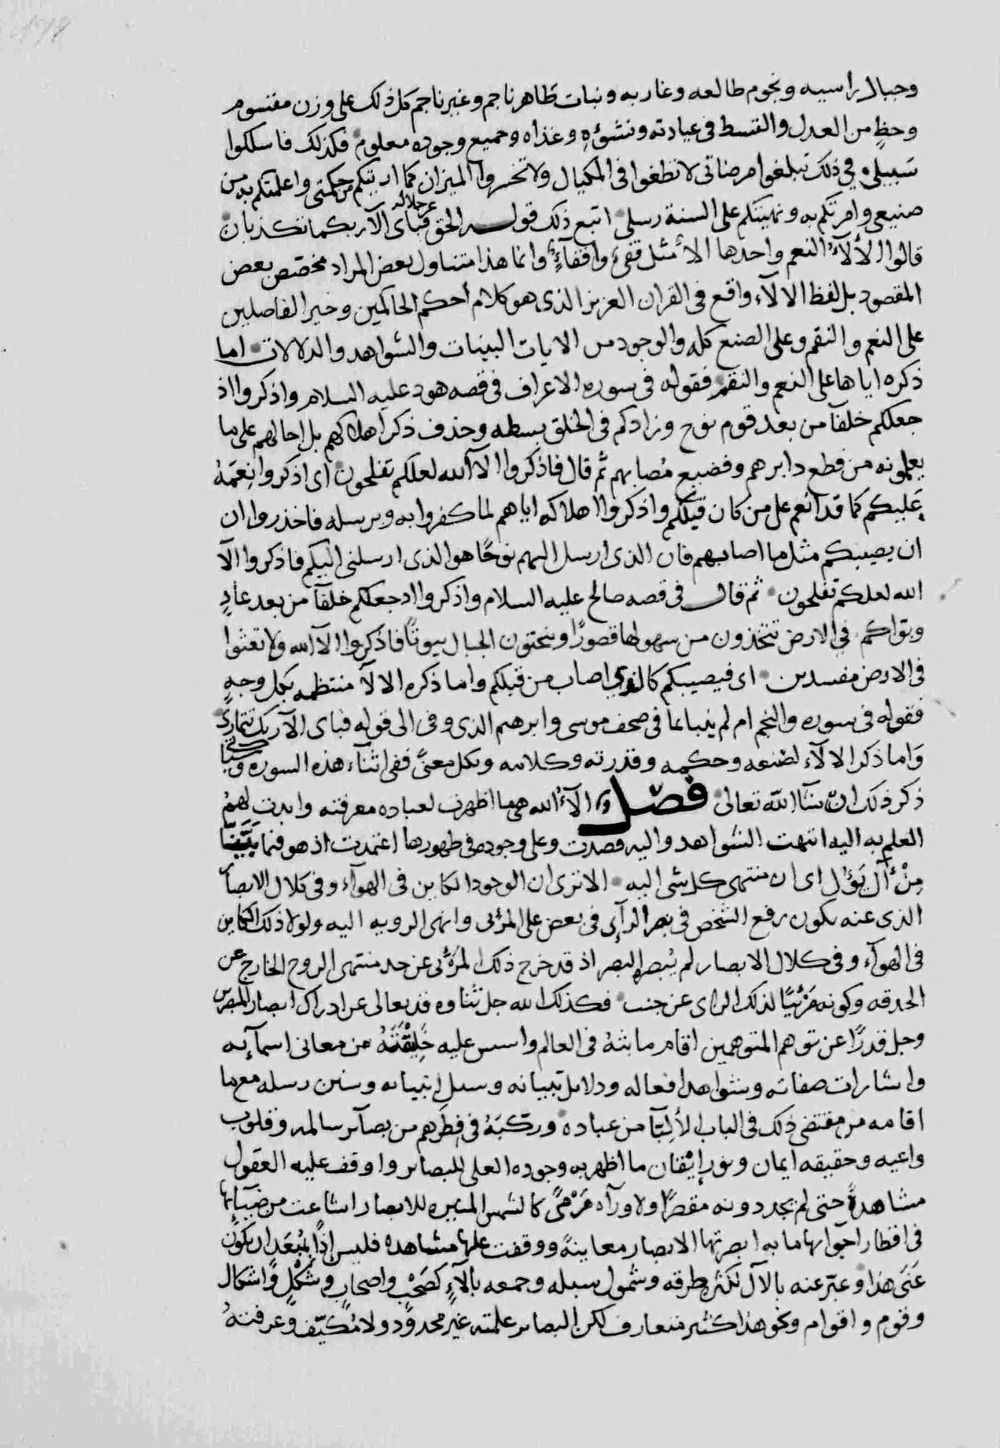 وجبال راسيه ونجوم طالعه وغاربه ونبات ظاهر ناجم وغير ناجم كل ذلك على وزن مقسوم
وحظٍ من العدل والقسط في عيادته ونشوءه وغذاه وجميع وجوده معلوم فكذلك فاسلكوا
سبيلي في ذلك تبلغوا مرضاتي لا تطغوا في المكيال ولا تخسروا الميزان كما اريتكم من حكمتي واعلمتكم به من
صنيعي وامرتكم به ونهيتكم على السنة رسلي اتبع ذلك قول الحق عز جلاله فبأي الآء ربكما تكذبان
قالوا الألآء النعم واحدها الأ مثل قفي واقفاء وانما هذا متناول بعض المراد مخصص بعض
المقصود بل لفظ الالاء واقع في القران العزيز الذي هو كلام احكم الحاكمين وخير الفاصلين
على النعم والنقم وعلى الصنع كله والوجود من الايات البينات والشواهد والدلالات اما
ذكره اياها على النعم والنقم فقوله في سوره الاعراف في قصه هود عليه السلام واذكروا اذ
جعلكم خلفآ من بعد قوم نوح وزادكم في الخلق بسطه وحذف ذكر اهلاكهم بل احالهم على ما
يعلمونه من قطع دابرهم وفضيع مصابهم ثم قال فاذكروا الآ الله لعلكم تفلحون اي اذكروا نعمهُ
عليكم كما قد انعم على من كان قبلكم واذكروا اهلاكه اياهم لما كفروا به وبرسله فاحذروا ان
ان يصيبكم مثل ما اصابهم فان الذي ارسل اليهم نوحًا هو الذي ارسلني اليكم فاذكروا الآ
الله لعلكم تفلحون ثم قال في قصه صالح عليه السلام واذكروا اذ جعلكم خلفآ من بعد عادٍ
وبوأكم في الارض تتخذون من سهولها قصورًا وينحتون الجبال بيوتًا فاذكروا الآ الله ولا تعثوا
في الارض مفسدين اي فيصيبكم كالذي اصاب من قبلكم واما ذكره الالآ منتظمه بكل وجهٍ
فقوله في سوره والنجم ام لم ينبا بما في صحف موسى وابرهيم الذي وفى الى قوله فباي الآء ربك تتمارى
وَاما ذكر الالآء لصنعه وحكمه وقدرته وكلامه وبكل معنًى ففي اثناء هذه السوره وسيأتي
ذكر ذلك ان شا الله تعالى فصل الآء الله هي ما اظهرت لعباده معرفته وابدت لهم
العلم به اليه انتهت الشواهد واليه قصدت وعلى وجوده في ظهورها اعتمدت اذ هو فيما
مِنْ آل يؤل اي ان منتهى كل شي اليه الا ترى ان الوجود الكاين في الهوآء وفي كلال الابصار
الذي عنه يكون رفع الشخص في بصر الرآي في بعض على المرئي وانهى الرويه اليه ولولا ذلك الكاين
في الهوآء وفي كلال الابصار لم يبصر البصر اذ قد خرج ذلك المرئي عن حد منتهى الروح الخارج عن
الحدقه وكونه مَرْئيًا لذلك الراي عن جنب فكذلك الله جل ثناوه قد تعالى عن ادراك ابصار المبصرين
وجل قدرًا عن توهم المتوهمين اقام ما بثهُ في العالم واسس عليه خَلِيْقَتَهُ من معاني اسمآيه
واشارات صفاته وشواهد افعاله ودلايل تبيانه وسبل انبيائه وسنن رسله مع ما
اقامه من مقتضى ذلك في الباب الألِبَّآ من عباده وركبَهُ في فِطَرهم من بصآير سالمه وقلوب
واعيه وحقيقه ايمان ونور إيْقان ما اظهر به وجوده العلي للبصاير واوقف عليه العقول
مشاهدةً حتى لم تجد دونه مقصرًا ولا ورآه مَرْمىً كالشمس المنيره للابصار اشاعت من ضيآيها
في اقطار اجوآيها ما به ابصرتها الابصار معاينةً ووقفت عليها مشاهده فليس اذًا ببُعَدٍ ان يكون
عَنى هذا وعبّر عنه بالآل لكثره طرقه وشمول سبله وجمعه بالآءٍ كصَحْبٍ واصحابٍ وشَكْلٍ واشكال
وقوم واقوام ونحو هذا كثير متعارف لكن البصاير علمته غير محدودٍ ولا مُكيّف وعرفته